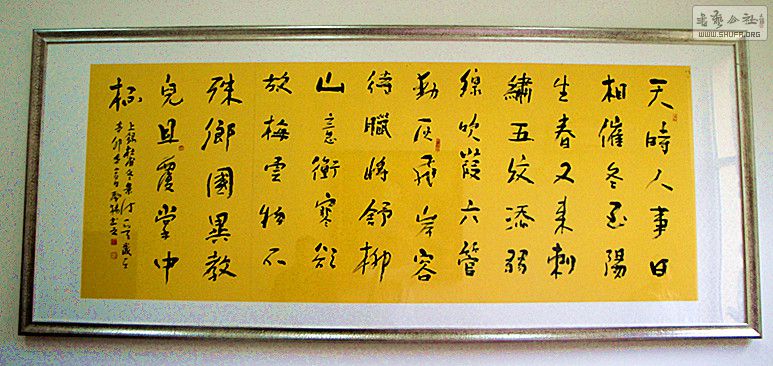 書藝公社
WWW.SHUFA.ORG
天時人事日
相催冬至陽
生春又来刺
繡五紋添弱
線吹葭六管
動灰飛岸容
待臘將舒柳
山意衝寒欲
放梅雲物不
殊鄉國異教
兒且覆掌中
杯
上錄杜甫冬景诗一首歲在